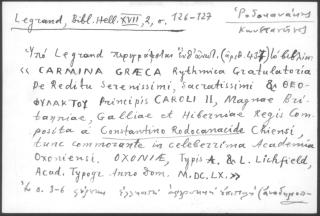 Legrand, Bibl. Hell. XVII, 2, σ. 126-127
Ῥοδοκανάκης
Κωνσταντῖνος
Ὑπὸ Legrand περιγράφεται (ἀριθ. 437) τὸ βιβλίον
« CARMINA GRÆCA Rythmica Gratulatoria
De Reditu Serenissimi, Sacratissimi & ΘΕΟ-
ΦΥΛΑΚΤΟΥ Principis CAROLI II, Magnae Bri-
tanniae, Galliae et Hiberniae Regis Com-
posita à Constantino Rodocanacide Chiensi,
tunc commorante in celeberrima Academia
Oxoniensi. OXONIÆ, Typis A. & L. Lichfield,
Acad. Typogr. Anno Dom. M.DC.LX. »
σ. 3-6